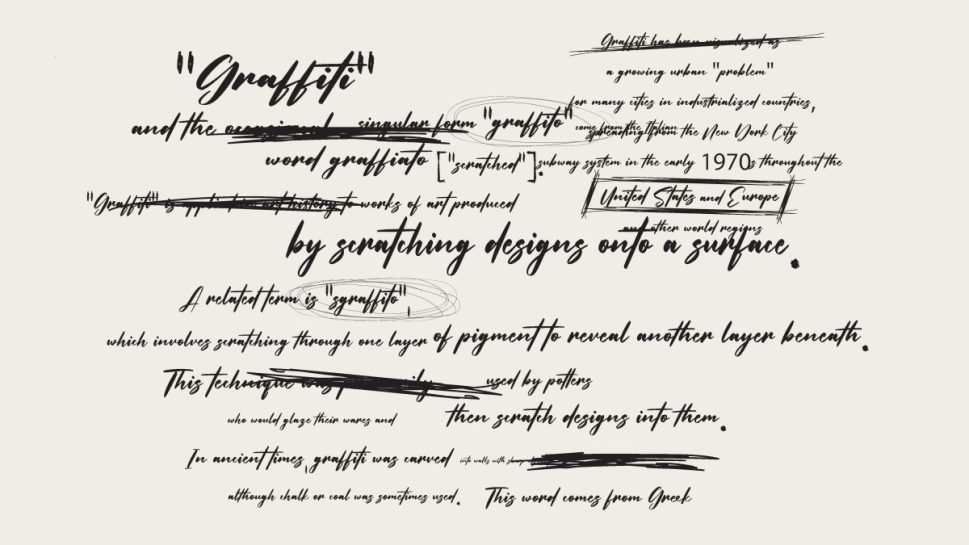 "Graffiti"
and the occasional singular form "graffito"
come from the Italian
word graffiato ["scratched"].
"Graffiti" is applied in art history to works of art produced
by scratching designs onto a surface.
A related term is "sgraffito",
which involves scratching through one layer of pigment to reveal another layer beneath.
This technique was primarily used by potters
who would glaze their wares and then scratch designs into them.
In ancient times, graffiti was carved into walls with
although chalk or coal was sometimes used. This word comes from Greek
Graffiti has been visualized as
a growing urban "problem"
for many cities in industrialized countries,
spreading from the New York City
subway system in the early 1970s throughout the
United States and Europe
and other world regions